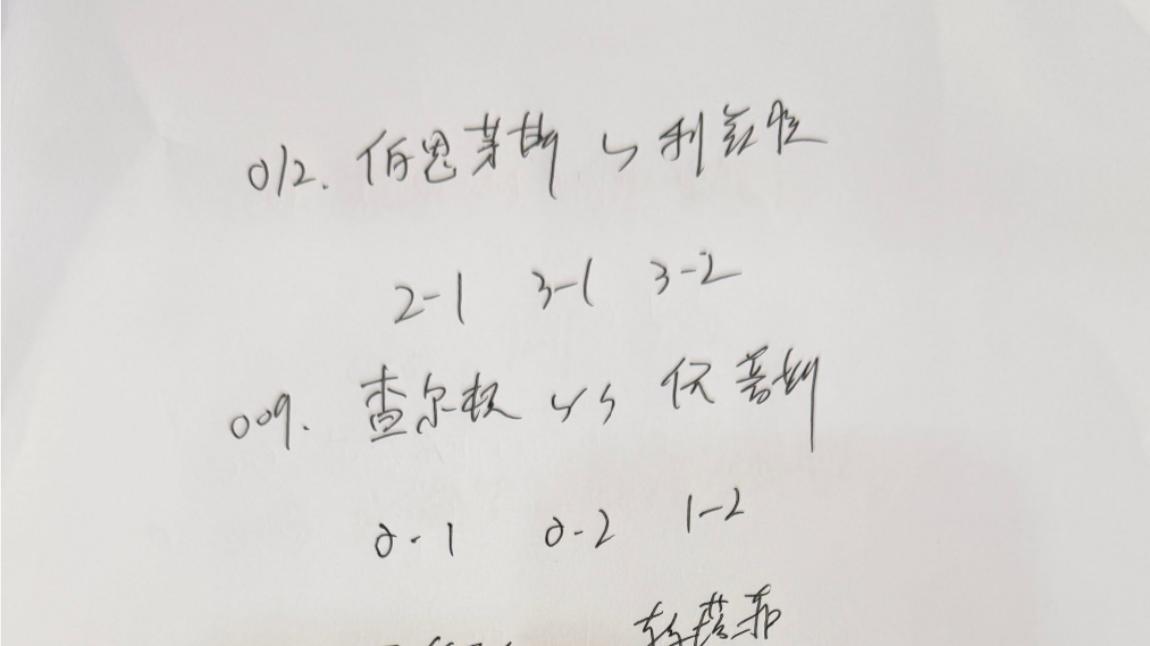 012. 伯恩茅斯 vs 利兹联
2-1 3-1 3-2
009. 查尔顿 vs 伊普斯
0-1 0-2 1-2
赫塔菲